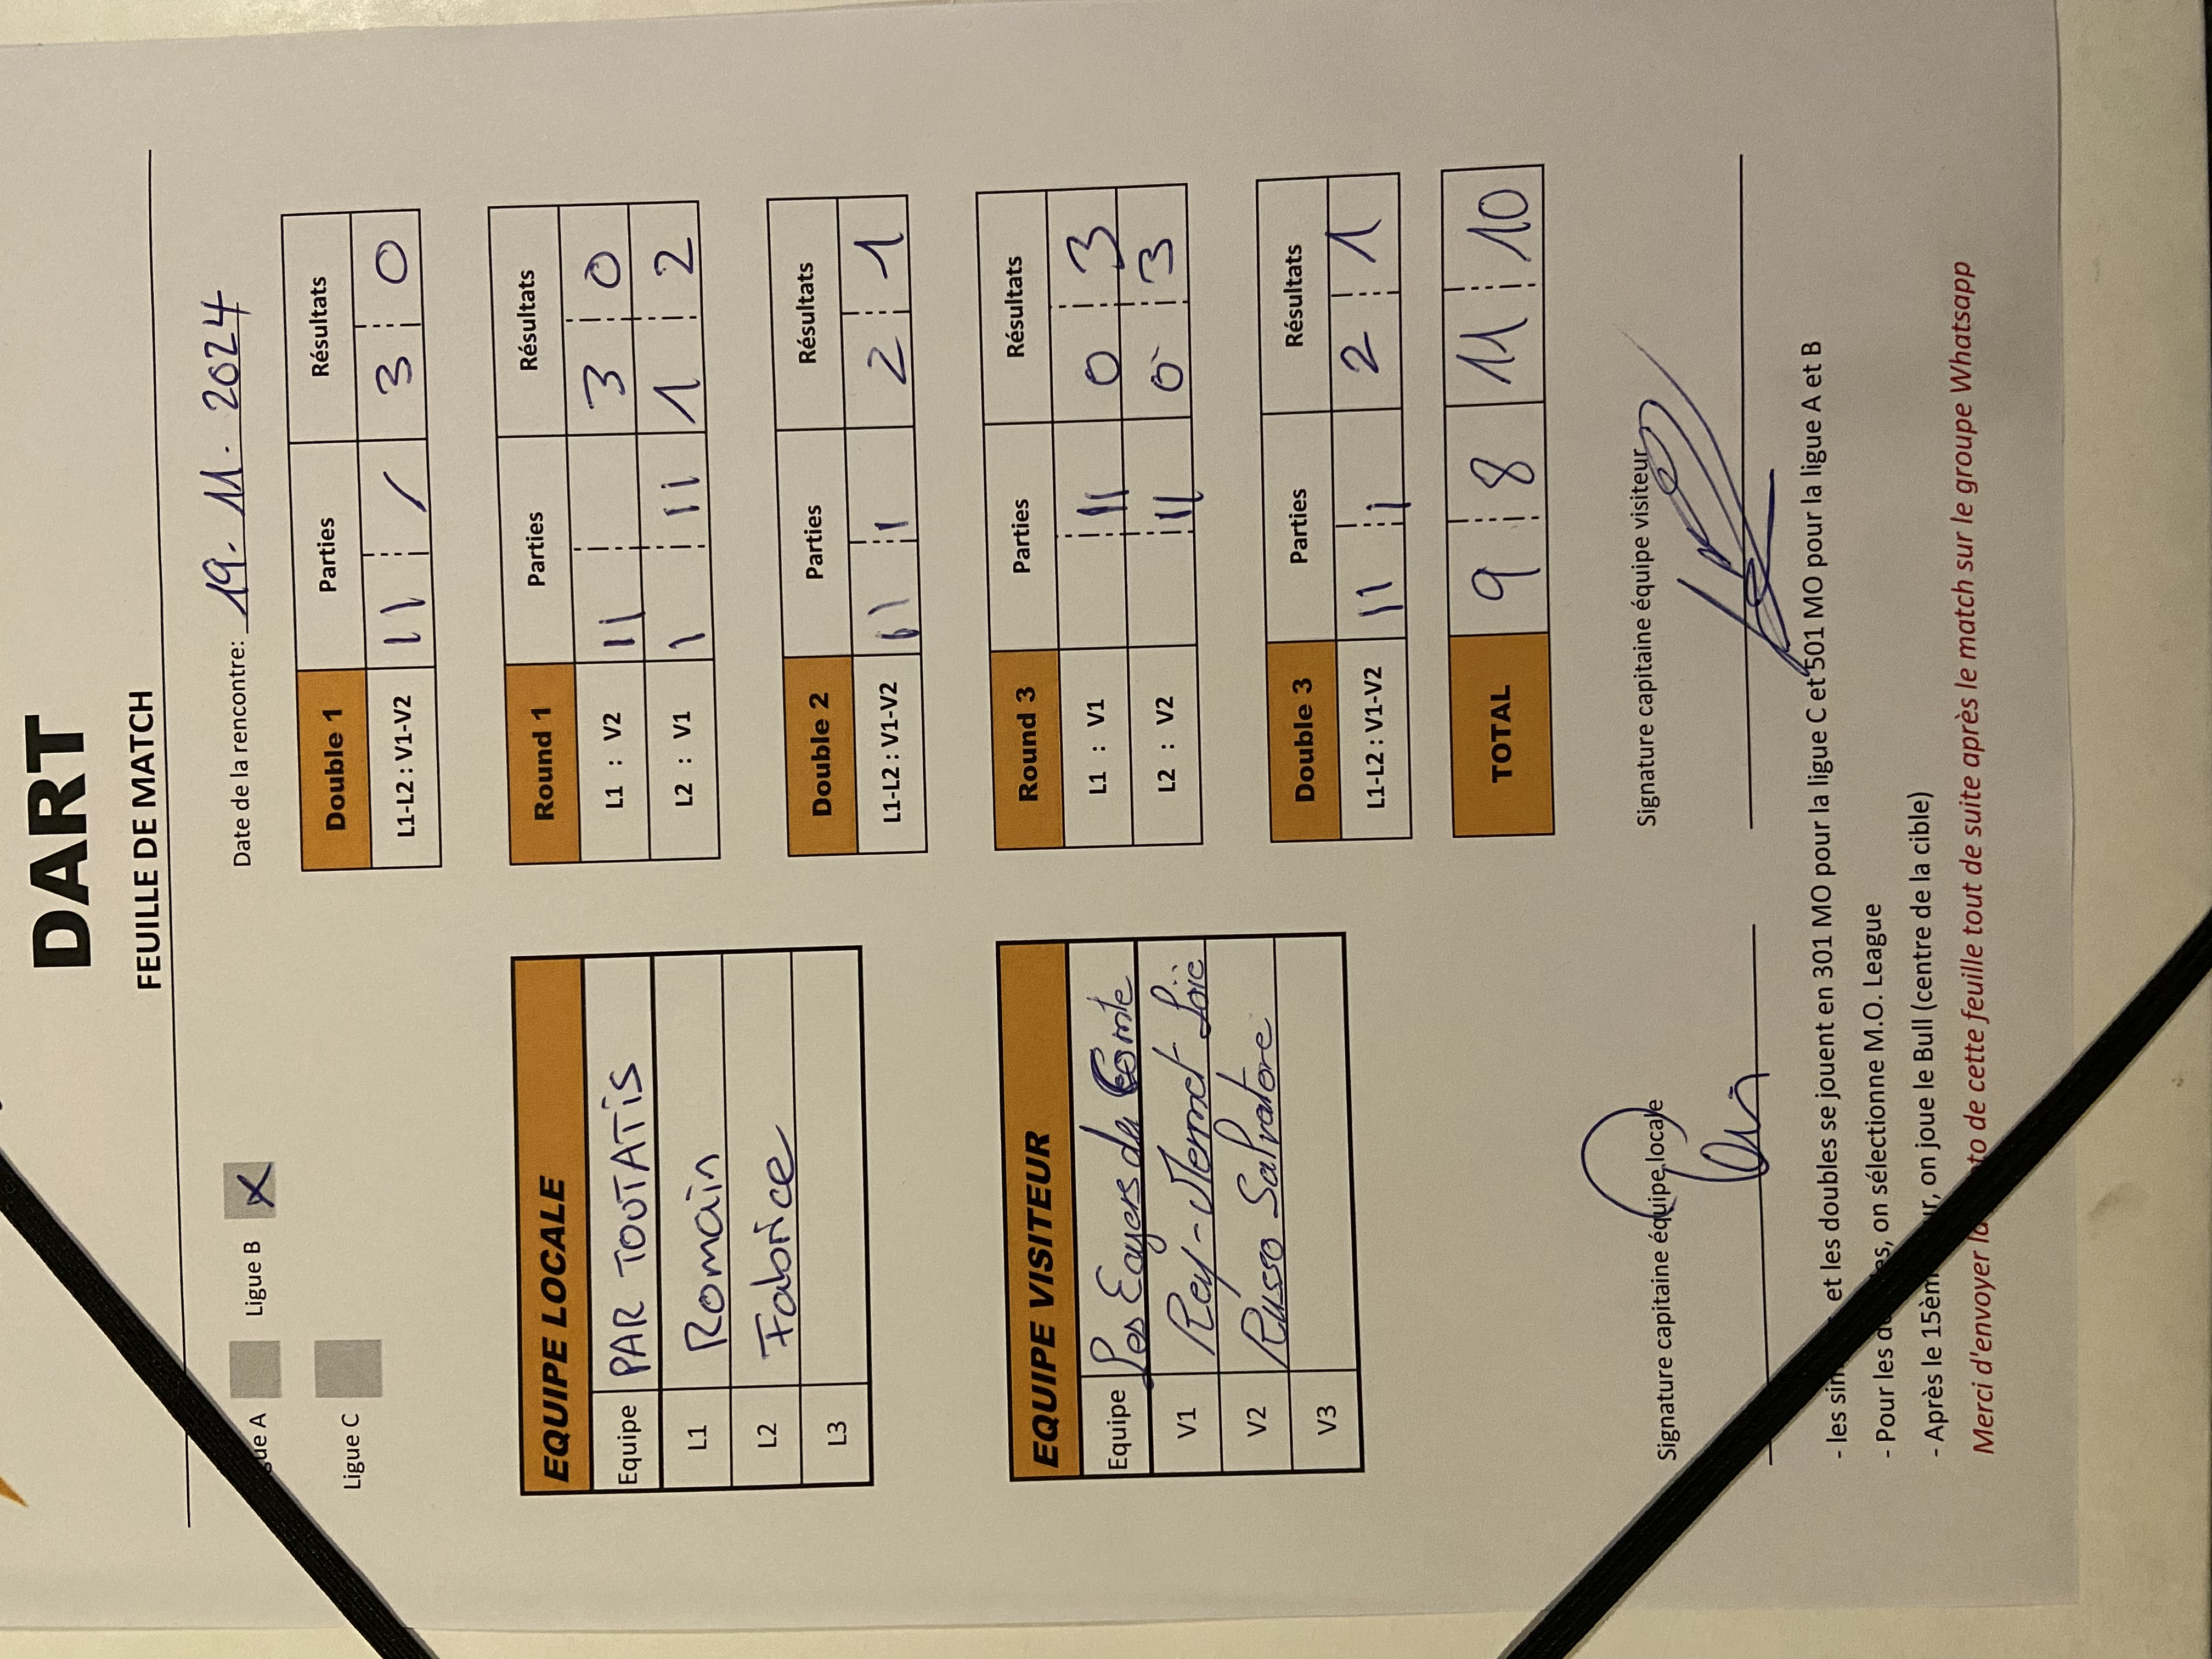 DART
FEUILLE DE MATCH
gue A Ligue B X
Ligue C
Date de la rencontre: 19. 11. 2024
EQUIPE LOCALE
Equipe PAR TOUTATIS
L1 Romain
L2 Fabrice
L3
EQUIPE VISITEUR
Equipe Les de Comte
V1 Rey-Mermet Loïc
V2 Russo Salvatore
V3
Double 1 Parties Résultats
L1-L2 : V1-V2 II / 3 0
Round 1 Parties Résultats
L1 : V2 II 3 0
L2 : V1 I II 1 2
Double 2 Parties Résultats
L1-L2 : V1-V2 II I 2 1
Round 3 Parties Résultats
L1 : V1 II 0 3
L2 : V2 II 0 3
Double 3 Parties Résultats
L1-L2 : V1-V2 II I 2 1
TOTAL 9 8 11 10
Signature capitaine équipe locale Signature capitaine équipe visiteur
- les et les doubles se jouent en 301 MO pour la ligue C et 501 MO pour la ligue A et B
- Pour les on sélectionne M.O. League
- Après le 15èm on joue le Bull (centre de la cible)
Merci d'envoyer la de cette feuille tout de suite après le match sur le groupe Whatsapp